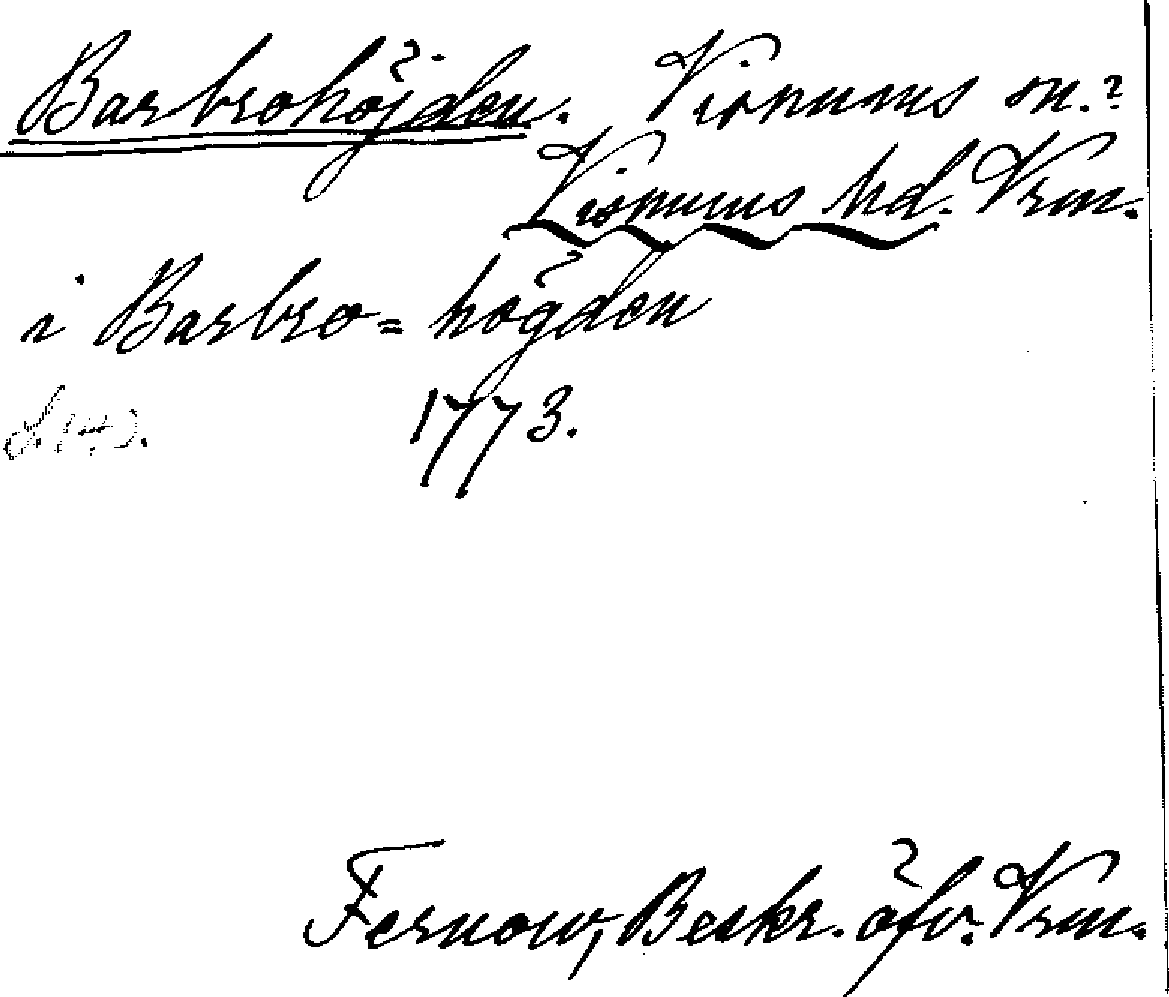 Barbrohöjden. Visnums sn.?
Visnums hd. Vrm.
i Barbro=högden
1773.
Fernow, Beskr. öfv. Vrm.